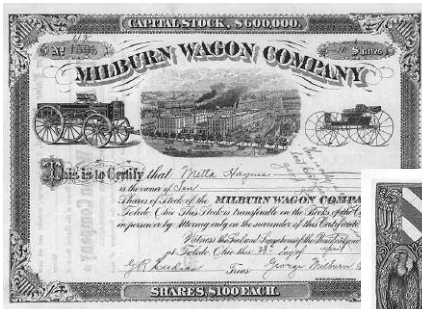 CAPITAL STOCK, $600,000.
Nº
Shares
MILBURN WAGON COMPANY
This is to Certify that Metta Haynes
is the owner of Ten
Shares of Stock of the MILBURN WAGON COMPA
Toledo, Ohio This Stock is transferable on the Books of the
in person or by Attorney only on the surrender of this Certificate
Witness the Seal and Signatures of the
at Toledo, Ohio this day of
Treas George Milburn
SHARES, $100 EACH.